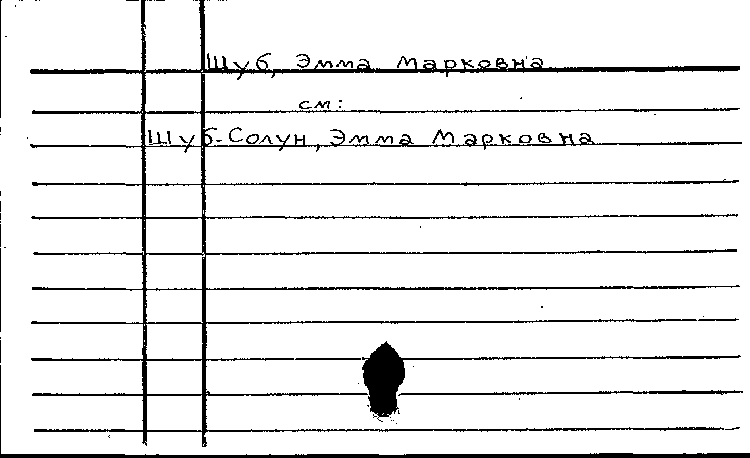 Шуб, Эмма Марковна
см:
Шуб-Солун, Эмма Марковна